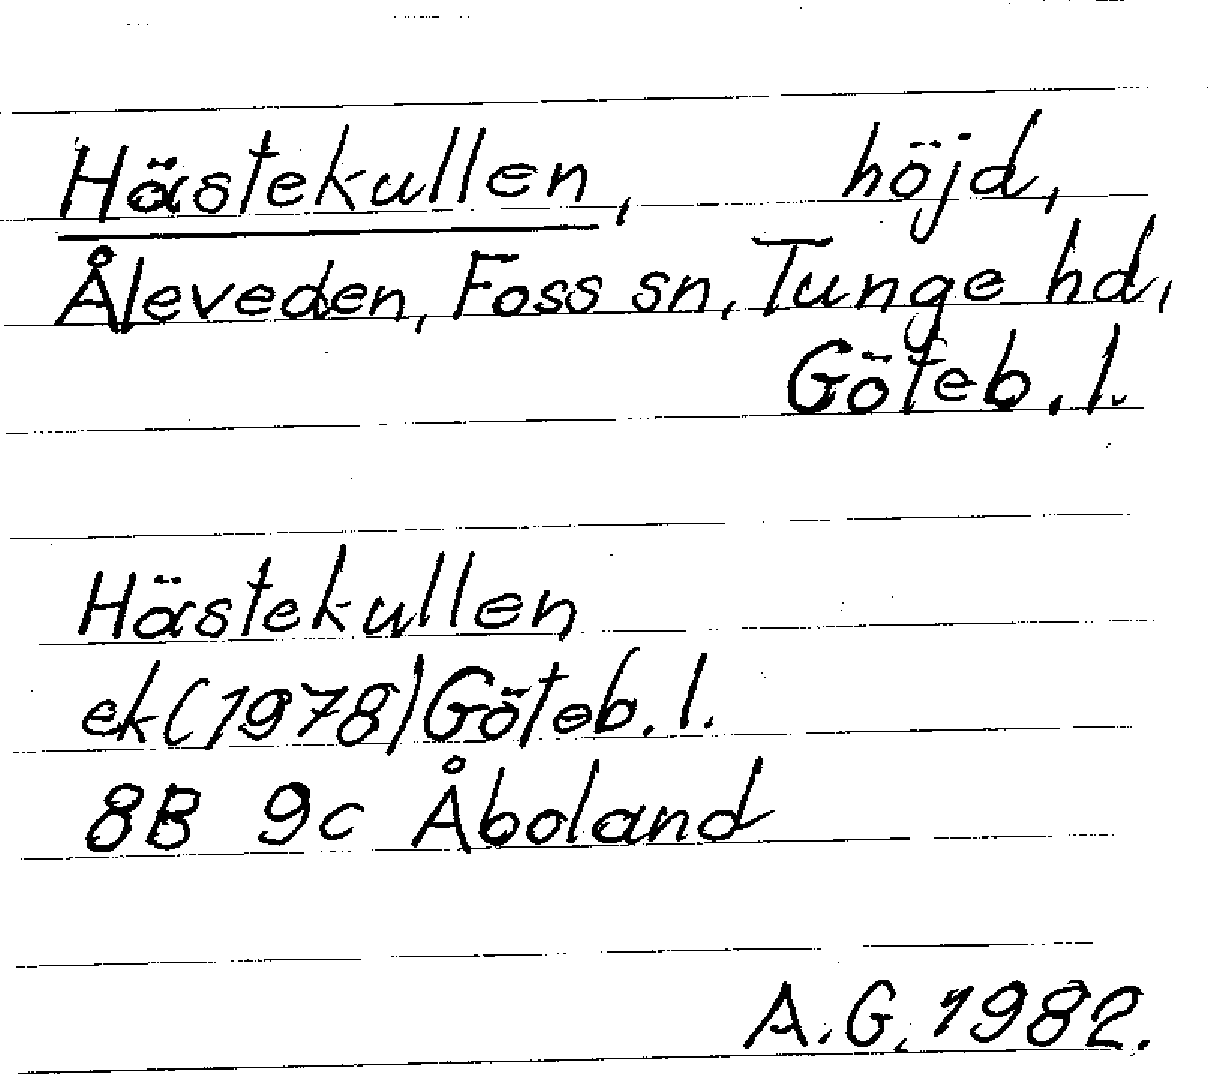 Hästekullen, höjd,
Åleveden, Foss sn, Tunge hd,
Göteb. l.
Hästekullen
ek (1978) Göteb. l.
8B 9c Åboland
A.G. 1982.